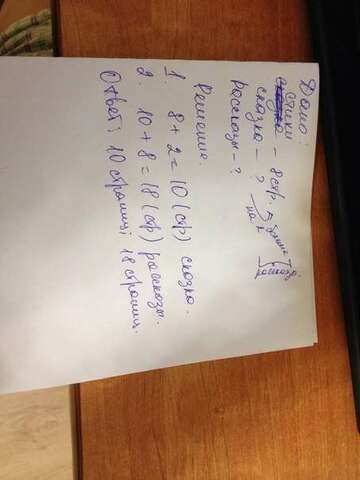 Дано:
стихи - 8 стр.
сказка - ?
на 2
рассказы - ?
Решение.
1. 8 + 2 = 10 (стр) сказка.
2. 10 + 8 = 18 (стр) рассказы.
Ответ: 10 страниц; 18 страниц.